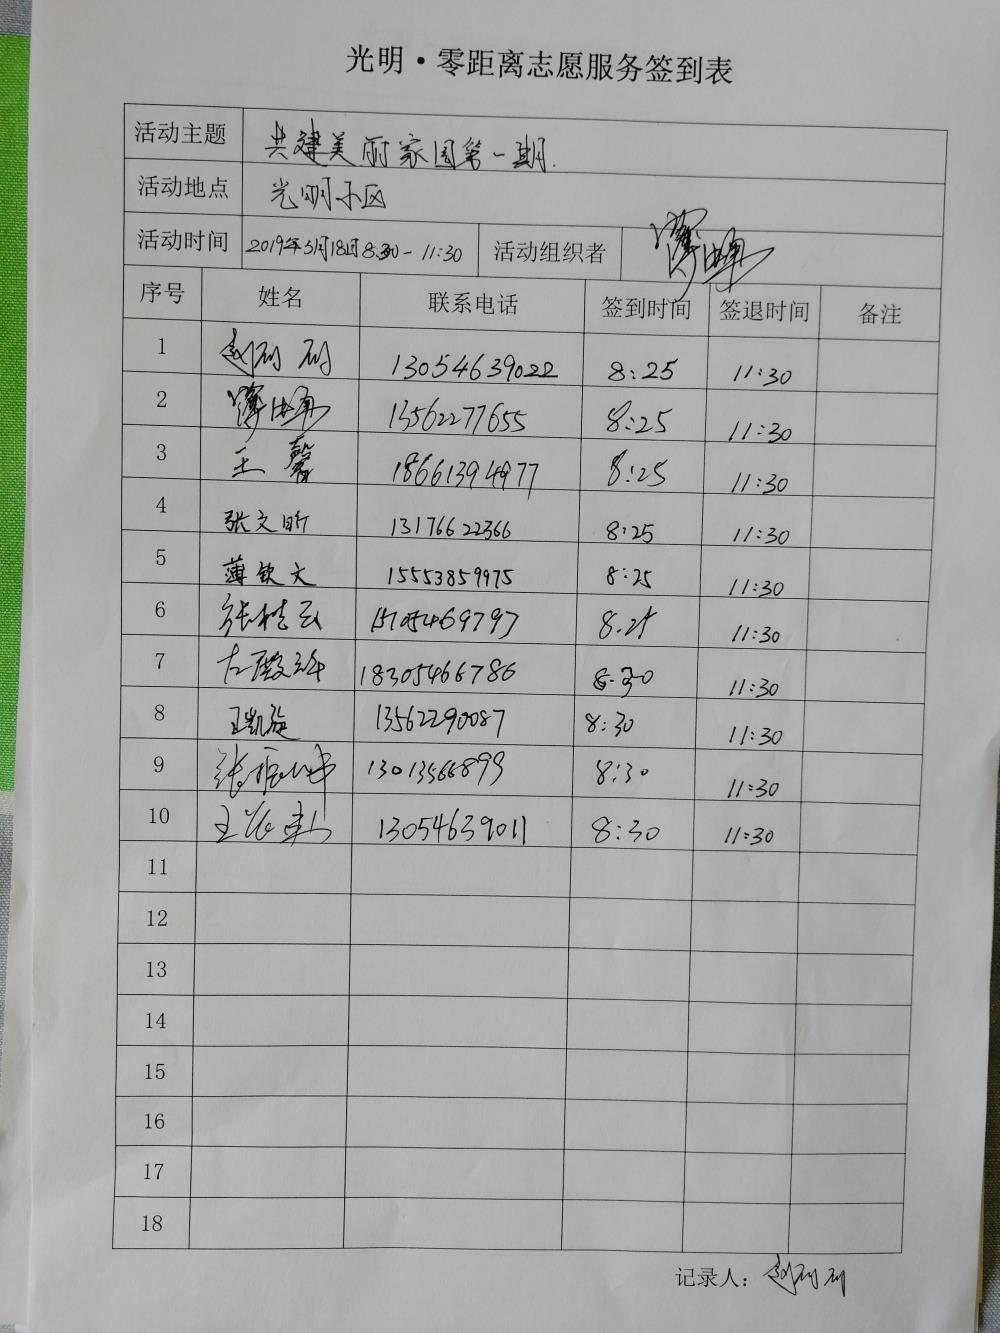 光明·零距离志愿服务签到表
活动主题 共建美丽家园第一期.
活动地点 光明小区
活动时间 2019年5月18日8:30-11:30 活动组织者
序号 姓名 联系电话 签到时间 签退时间 备注
1 13054639022 8:25 11:30
2 13562277655 8:25 11:30
3 王馨 18661394977 8:25 11:30
4 张文昕 13176622366 8:25 11:30
5 薄钦文 15553859975 8:25 11:30
6 张桂云 15105469797 8.25 11:30
7 18305466786 8:30 11:30
8 王凯旋 13562290087 8:30 11:30
9 13013566899 8:30 11:30
10 13054639011 8:30 11:30
11
12
13
14
15
16
17
18
记录人: